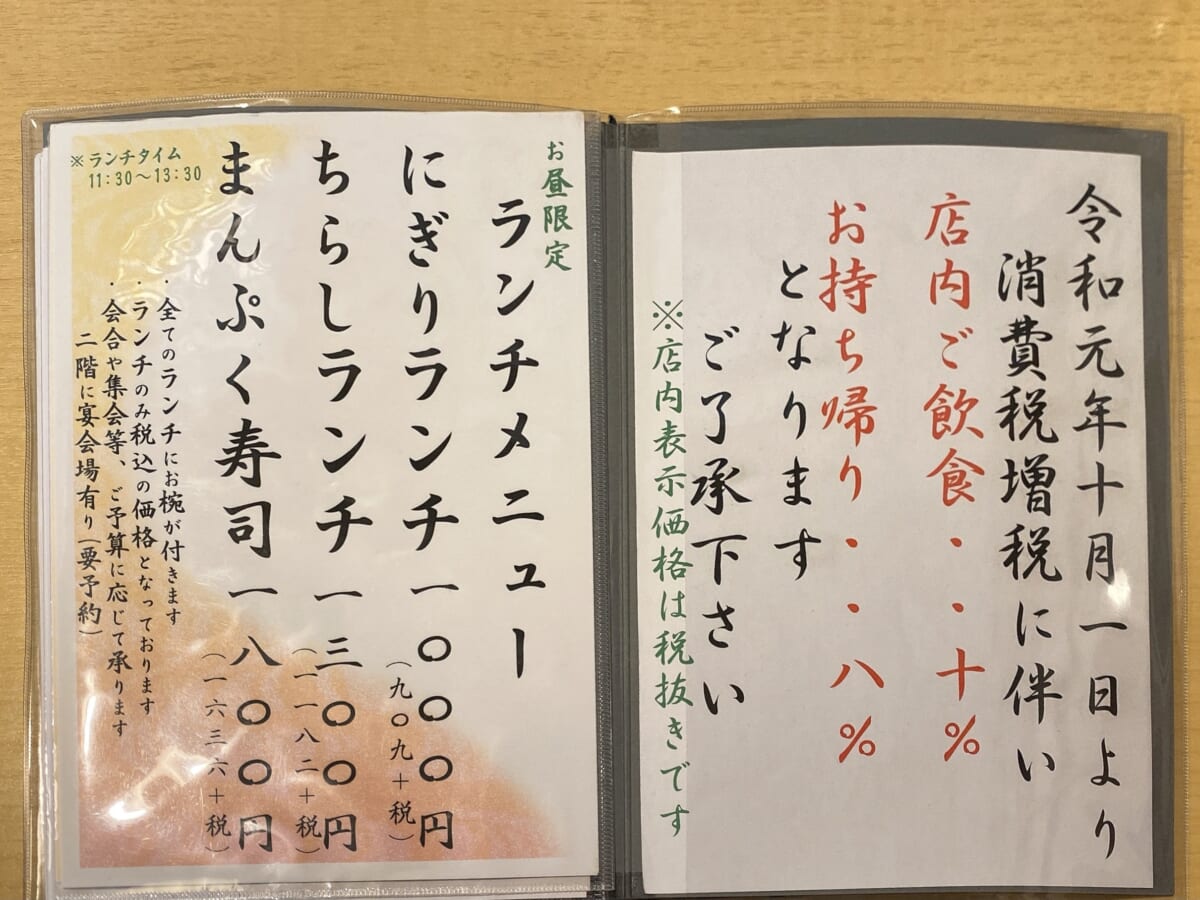 令和元年十月一日より
消費税増税に伴い
店内ご飲食・・十%
お持ち帰り・・八%
となります
ご了承下さい
※店内表示価格は税抜きです
お昼限定
ランチメニュー
にぎりランチ一〇〇〇円
(九〇九+税)
ちらしランチ一三〇〇円
(一一八二+税)
まんぷく寿司一八〇〇円
(一六三六+税)
※ランチタイム
11:30~13:30
・全てのランチにお椀が付きます
・ランチのみ税込の価格となっております
・会合や集会等、ご予算に応じて承ります
二階に宴会場有り(要予約)